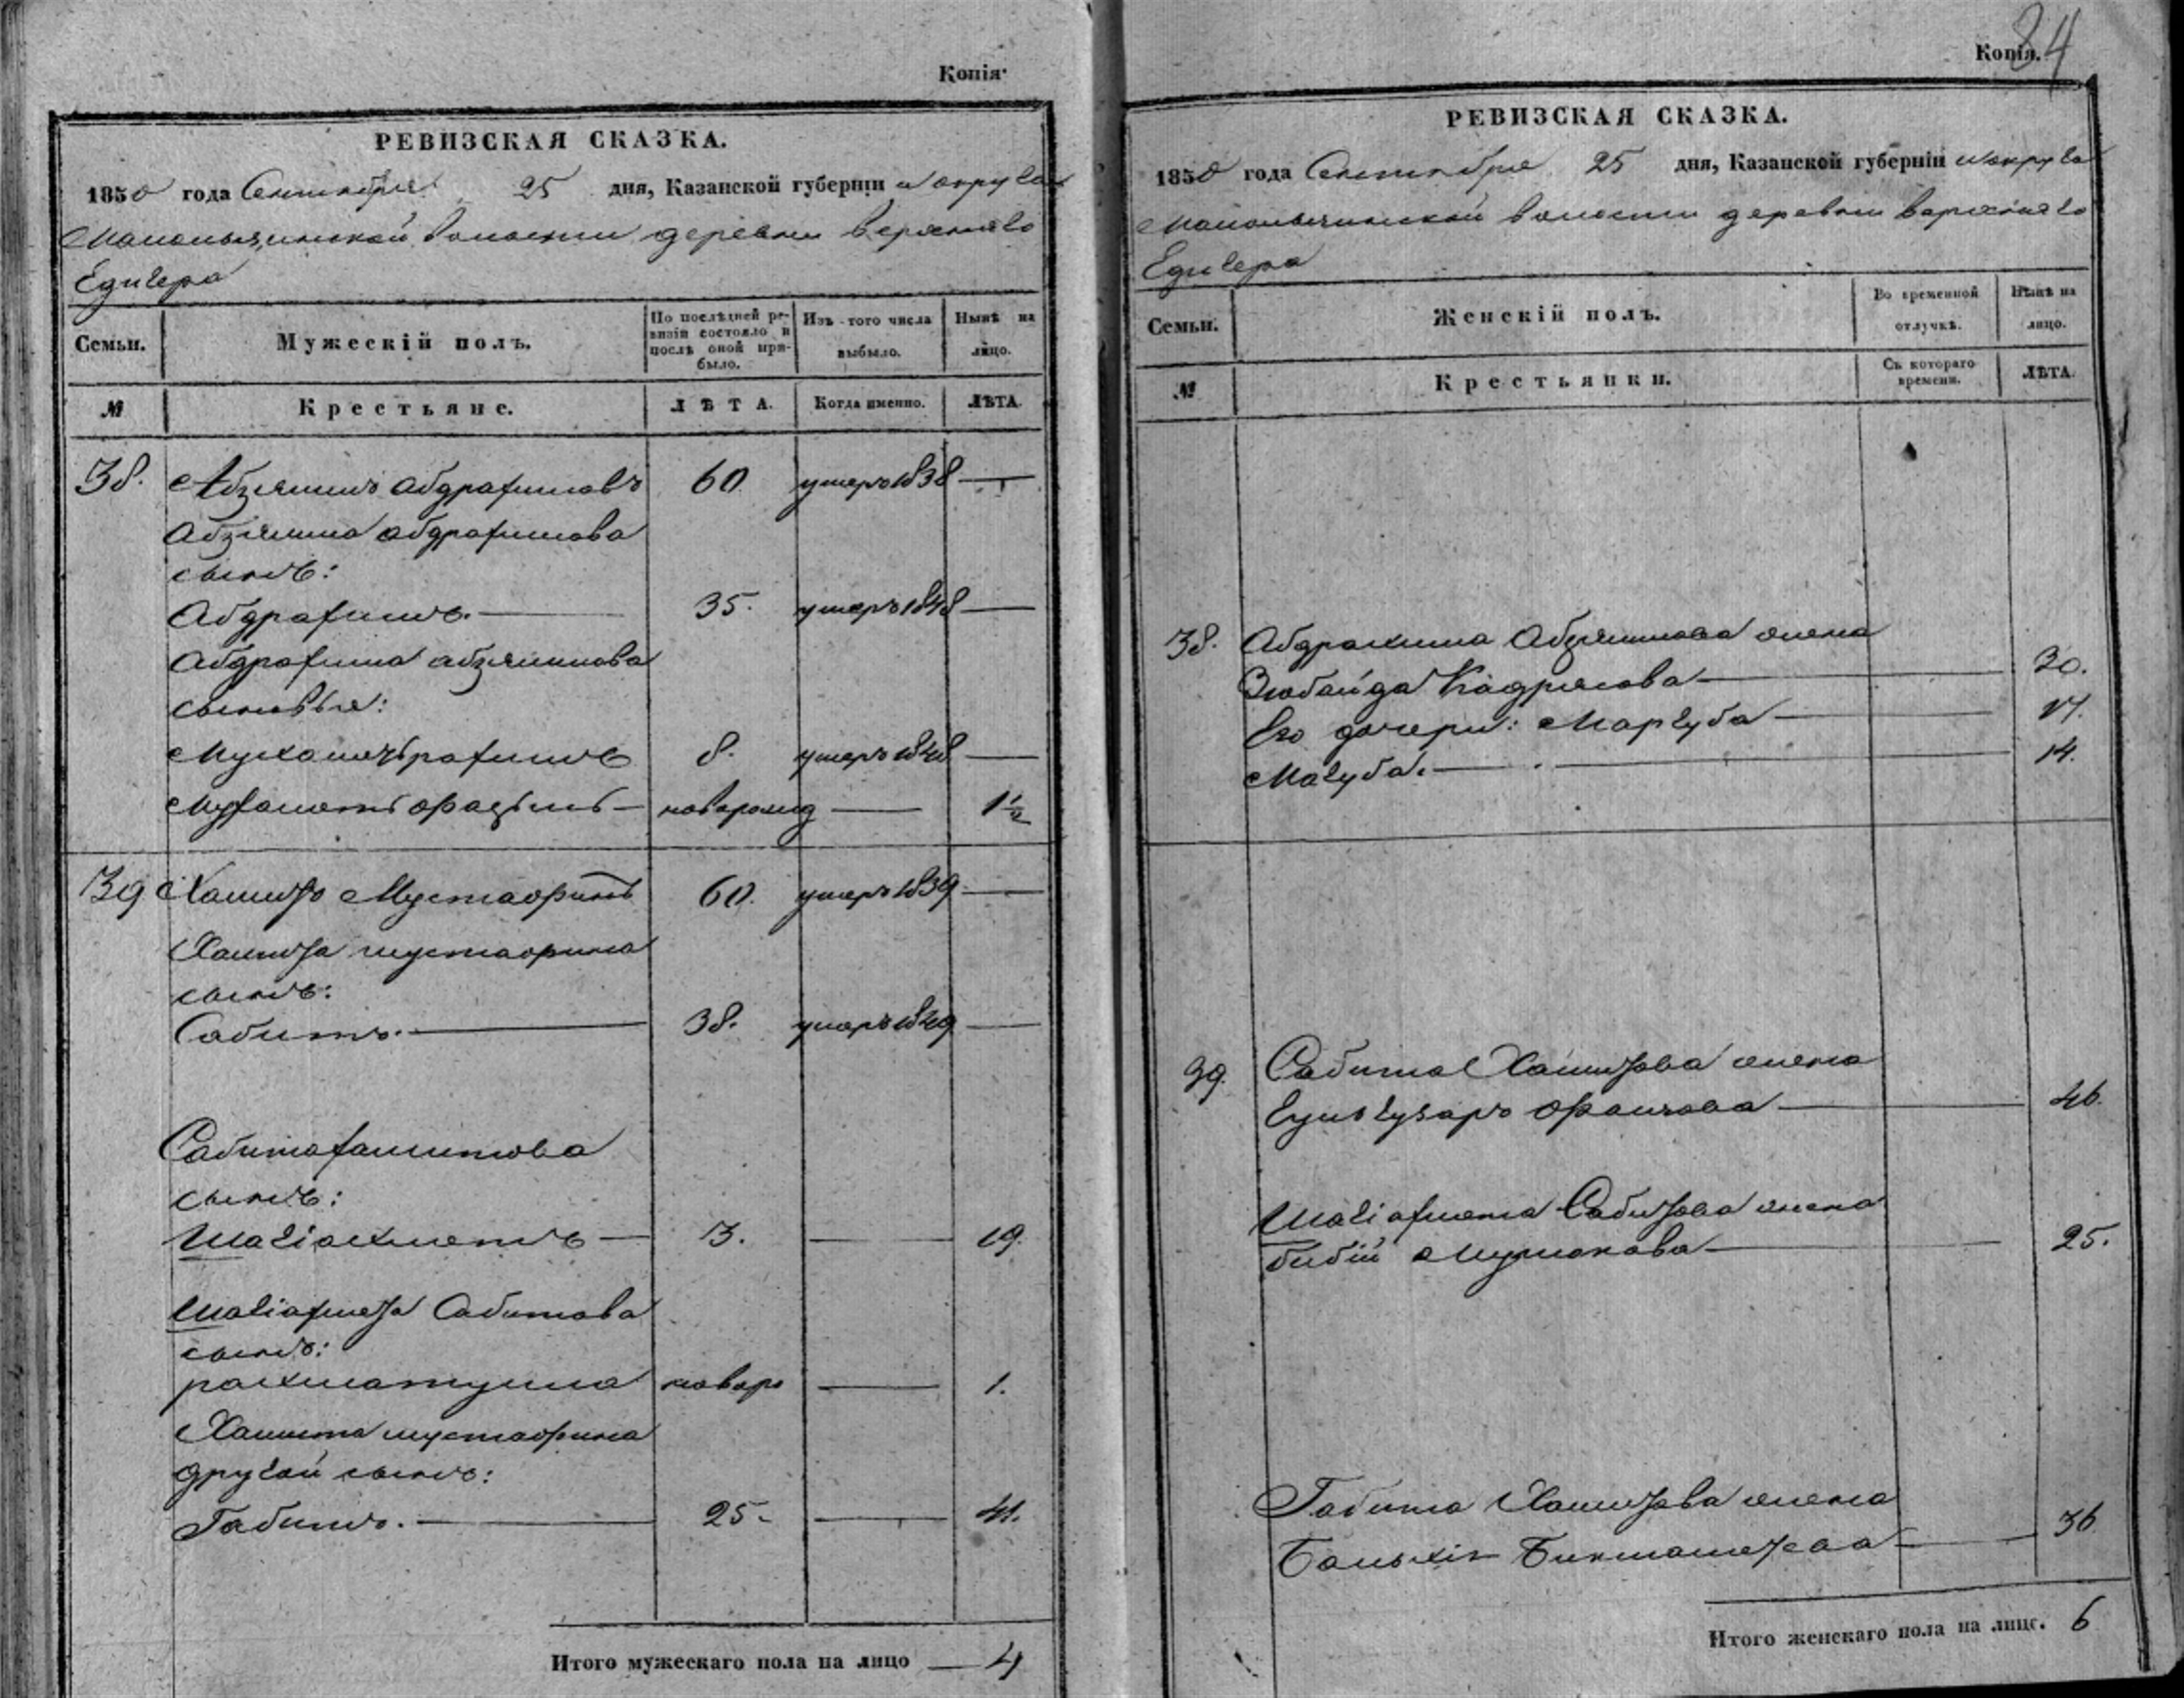 Копія.
РЕВИЗСКАЯ СКАЗКА.
1850 года Сентября 25 дня, Казанской губерніи и округа
волости деревни верхняго
Едигера
Семьи.
Мужескій полъ.
По послѣдней ревизіи состояло и послѣ оной прибыло.
Изъ того числа выбыло.
Нынѣ на лицо.
№
Крестьяне.
ЛѢТА.
Когда именно.
ЛѢТА.
38. Абзялилъ абдрахимовъ 60 умеръ 1838 —
абдрахимова
сынъ:
Абдрахимъ. — 35. умеръ 1848 —
Абдрахима
сыновья:
Мухаметьрахимъ 8. умеръ 1848 —
Мухаметь — новорожд — 1 1/2
39 Хамитъ Мустафинъ 60. умеръ 1839 —
Хамита мустафина
сынъ:
Сабитъ. — 38. умеръ 1849 —
Сабита хамитова
сынъ:
Шагіахметъ — 3. — 19.
Шагіахмета Сабитова
сынъ:
рахматулла новоро — 1.
Хамита мустафина
другой сынъ:
Габитъ. — 25. — 41.
Итого мужескаго пола на лицо — 4
84
Копія.
РЕВИЗСКАЯ СКАЗКА.
1850 года Сентября 25 дня, Казанской губерніи и округа
волости деревни верхняго
Едигера
Семьи.
Женскій полъ.
Во временной отлучкѣ.
Нынѣ на лицо.
№
Крестьянки.
Съ котораго времени.
ЛѢТА.
38. Абдрахима жена
Зюбайда — 30.
Его дочери: Маргуба — 17.
Магуба. — 14.
39. Сабита Хамитова жена
— 46.
Шагіахмета Сабитова жена
бибій — 25.
Габита Хамитова жена
— 36
Итого женскаго пола на лицо. 6